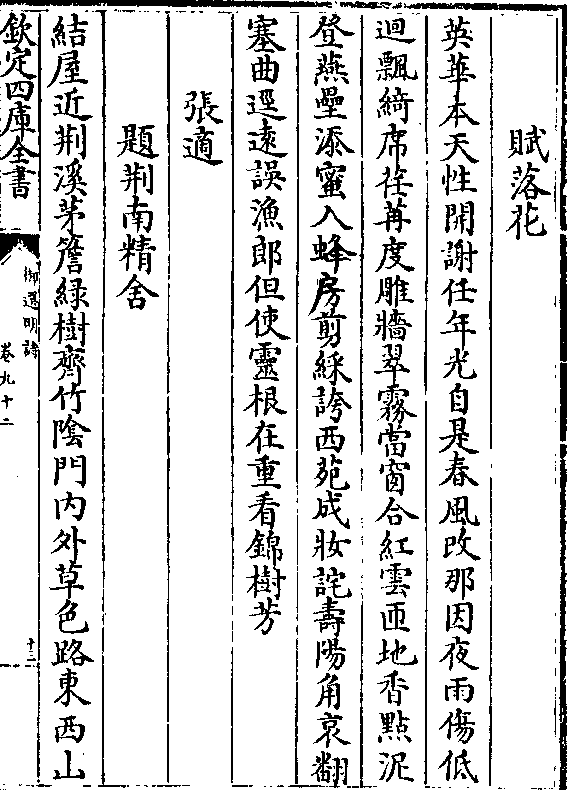 賦落花
英華本天性開謝任年光自是春風改那因夜雨傷低
迴飄綺席荏苒度雕牆翠霧當窗合紅雲匝地香點泥
登燕壘添蜜入蜂房剪綵誇西苑成妝詫壽陽角哀翻
塞曲逕遠誤漁郎但使靈根在重看錦樹芳
張適
題荆南精舍
結屋近荆溪茅簷綠樹齊竹陰門內外草色路東西山
欽定四庫全書
御選明詩
卷九十二
十三